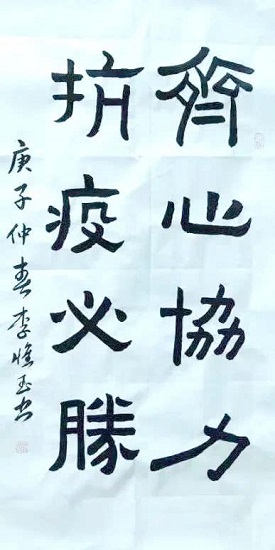 齊心協力
抗疫必勝
庚子仲春李憔玉书